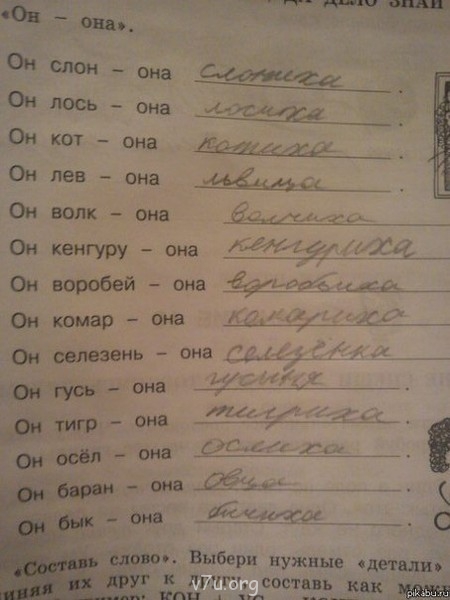 ДА ДЕЛО ЗНАЙ
«Он – она».
Он слон – она слониха.
Он лось – она лосиха.
Он кот – она котиха.
Он лев – она львица.
Он волк – она волчиха
Он кенгуру – она кенгуриха
Он воробей – она воробьиха
Он комар – она комариха
Он селезень – она селезёнка
Он гусь – она гусыня.
Он тигр – она тигриха.
Он осёл – она ослиха.
Он баран – она овца.
Он бык – она бычиха.
«Составь слово». Выбери нужные «детали»
иняя их друг к другу, составь как можн
КОН УС
v7u.org
pikabu.ru